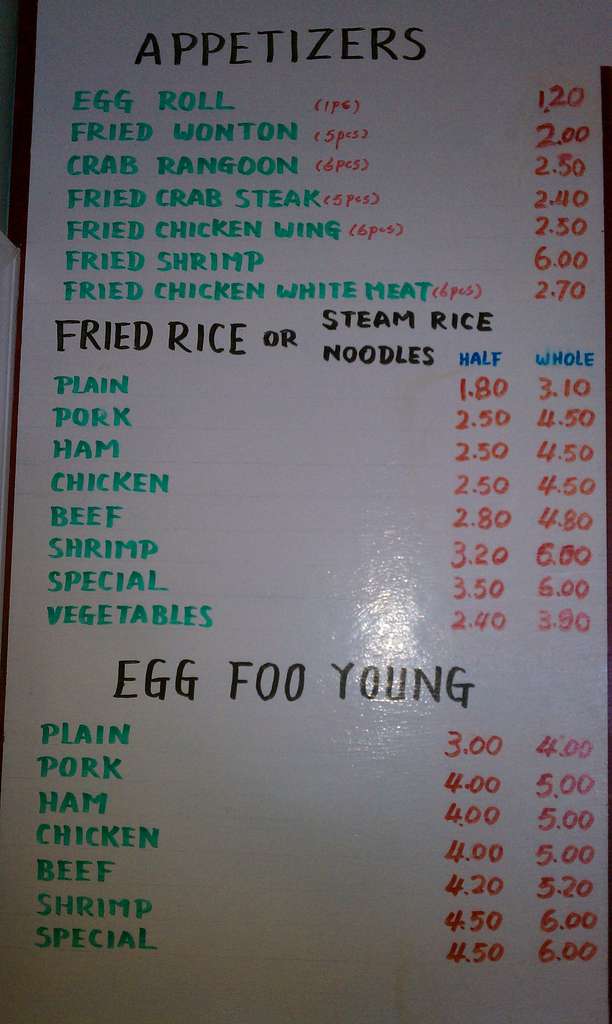 APPETIZERS
EGG ROLL (1pc) 1.20
FRIED WONTON (5pcs) 2.00
CRAB RANGOON (6pcs) 2.50
FRIED CRAB STEAK (5pcs) 2.40
FRIED CHICKEN WING (6pcs) 2.50
FRIED SHRIMP 6.00
FRIED CHICKEN WHITE MEAT (6pcs) 2.70
FRIED RICE OR STEAM RICE
NOODLES HALF WHOLE
PLAIN 1.80 3.10
PORK 2.50 4.50
HAM 2.50 4.50
CHICKEN 2.50 4.50
BEEF 2.80 4.80
SHRIMP 3.20
SPECIAL 3.50 6.00
VEGETABLES 2.40
EGG FOO YOUNG
PLAIN 3.00 4.00
PORK 4.00 5.00
HAM 4.00 5.00
CHICKEN 4.00 5.00
BEEF 4.20 5.20
SHRIMP 4.50 6.00
SPECIAL 4.50 6.00